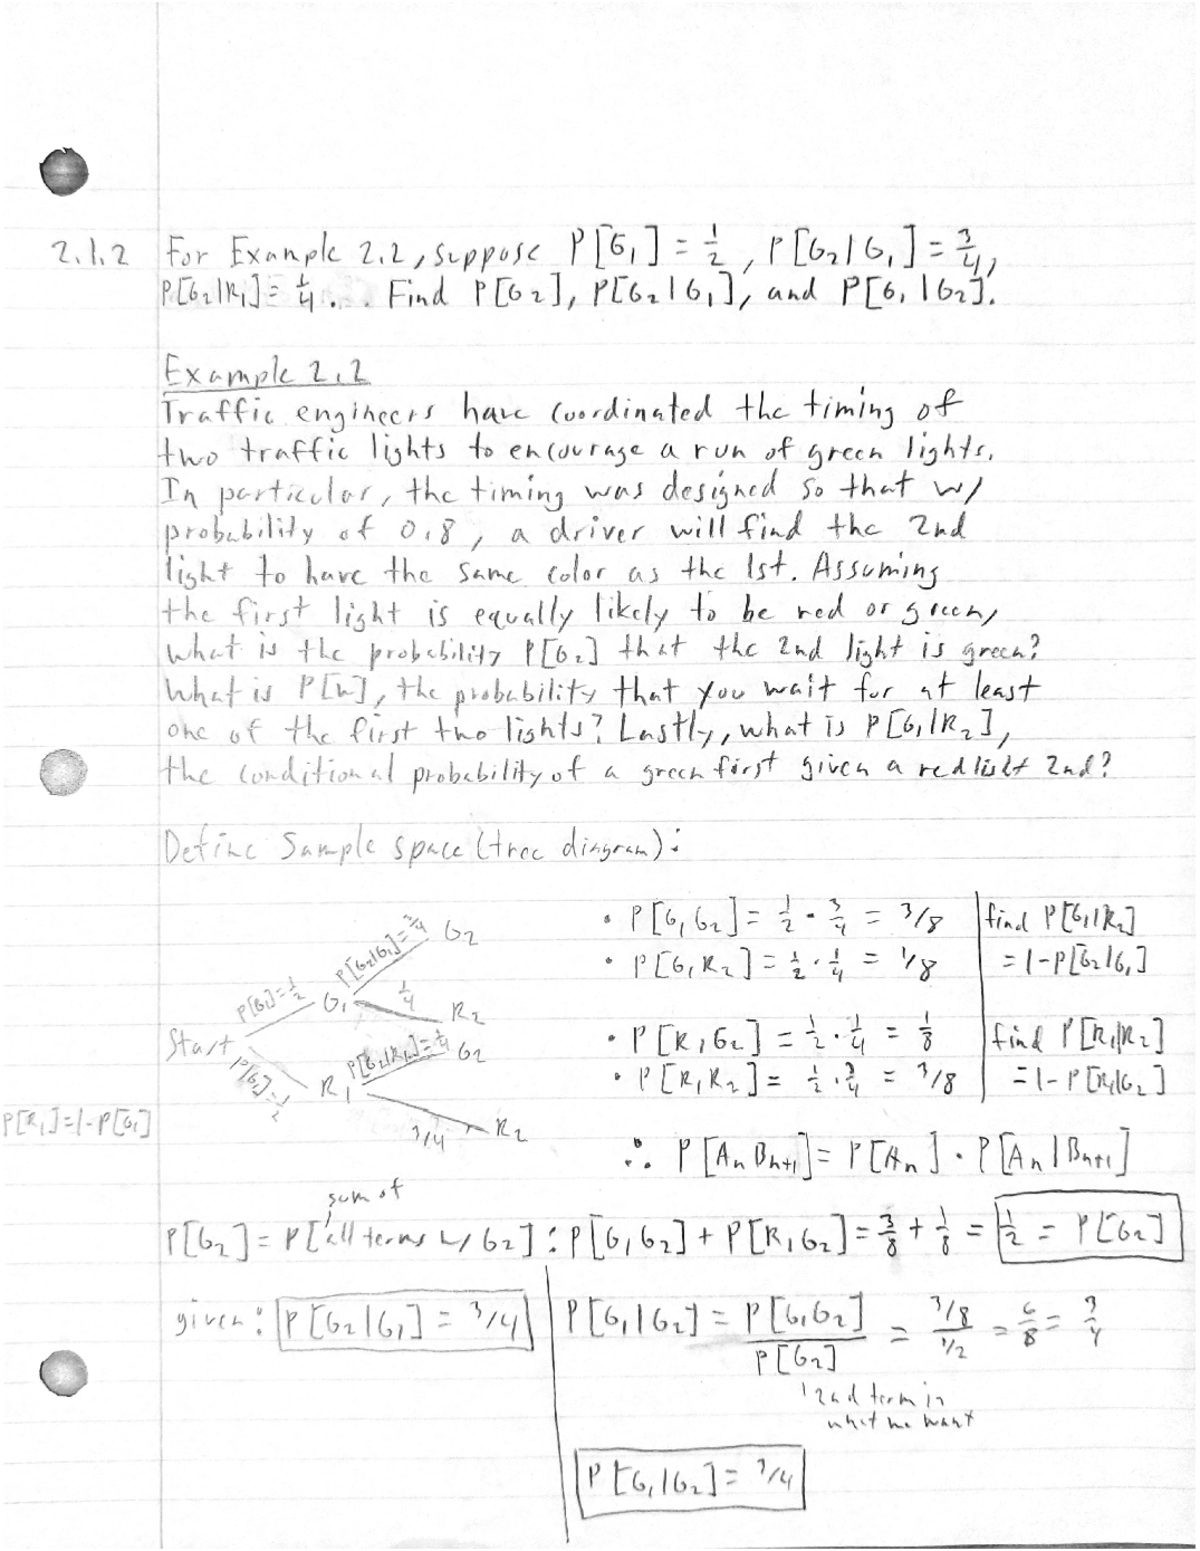 2.1.2 For Example 2.2, suppose P[G₁] = 1/2, P[G₂|G₁] = 3/4,
P[G₂|R₁] = 1/4 . . . Find P[G₂], P[G₂|G₁], and P[G₁|G₂].
Example 2.2
Traffic engineers have coordinated the timing of
two traffic lights to encourage a run of green lights.
In particular, the timing was designed so that w/
probability of 0.8, a driver will find the 2nd
light to have the same color as the 1st. Assuming
the first light is equally likely to be red or green,
what is the probability P[G₂] that the 2nd light is green?
What is P[W], the probability that you wait for at least
one of the first two lights? Lastly, what is P[G₁|R₂],
the conditional probability of a green first given a red light 2nd?
Define Sample space (tree diagram):
Start
P[G₁]=1/2
G₁
P[G₂|G₁]=3/4
G₂
1/4
R₂
P[G₁]=1/2
R₁
P[G₂|R₁]=1/4
G₂
3/4
R₂
P[R₁]=1-P[G₁]
• P[G₁G₂] = 1/2 · 3/4 = 3/8
• P[G₁R₂] = 1/2 · 1/4 = 1/8
• P[R₁G₂] = 1/2 · 1/4 = 1/8
• P[R₁R₂] = 1/2 · 3/4 = 3/8
find P[G₁|R₂]
= 1-P[G₂|G₁]
find P[R₁|R₂]
= 1-P[R₁|G₂]
∴ P[AₙBₙ₊₁] = P[Aₙ] · P[Aₙ|Bₙ₊₁]
sum of
P[G₂] = P[all terms w/ G₂] : P[G₁G₂] + P[R₁G₂] = 3/8 + 1/8 = 1/2 = P[G₂]
given: P[G₂|G₁] = 3/4
P[G₁|G₂] = P[G₁G₂] / P[G₂] = 3/8 / 1/2 = 6/8 = 3/4
2nd term is
what we want
P[G₁|G₂] = 3/4